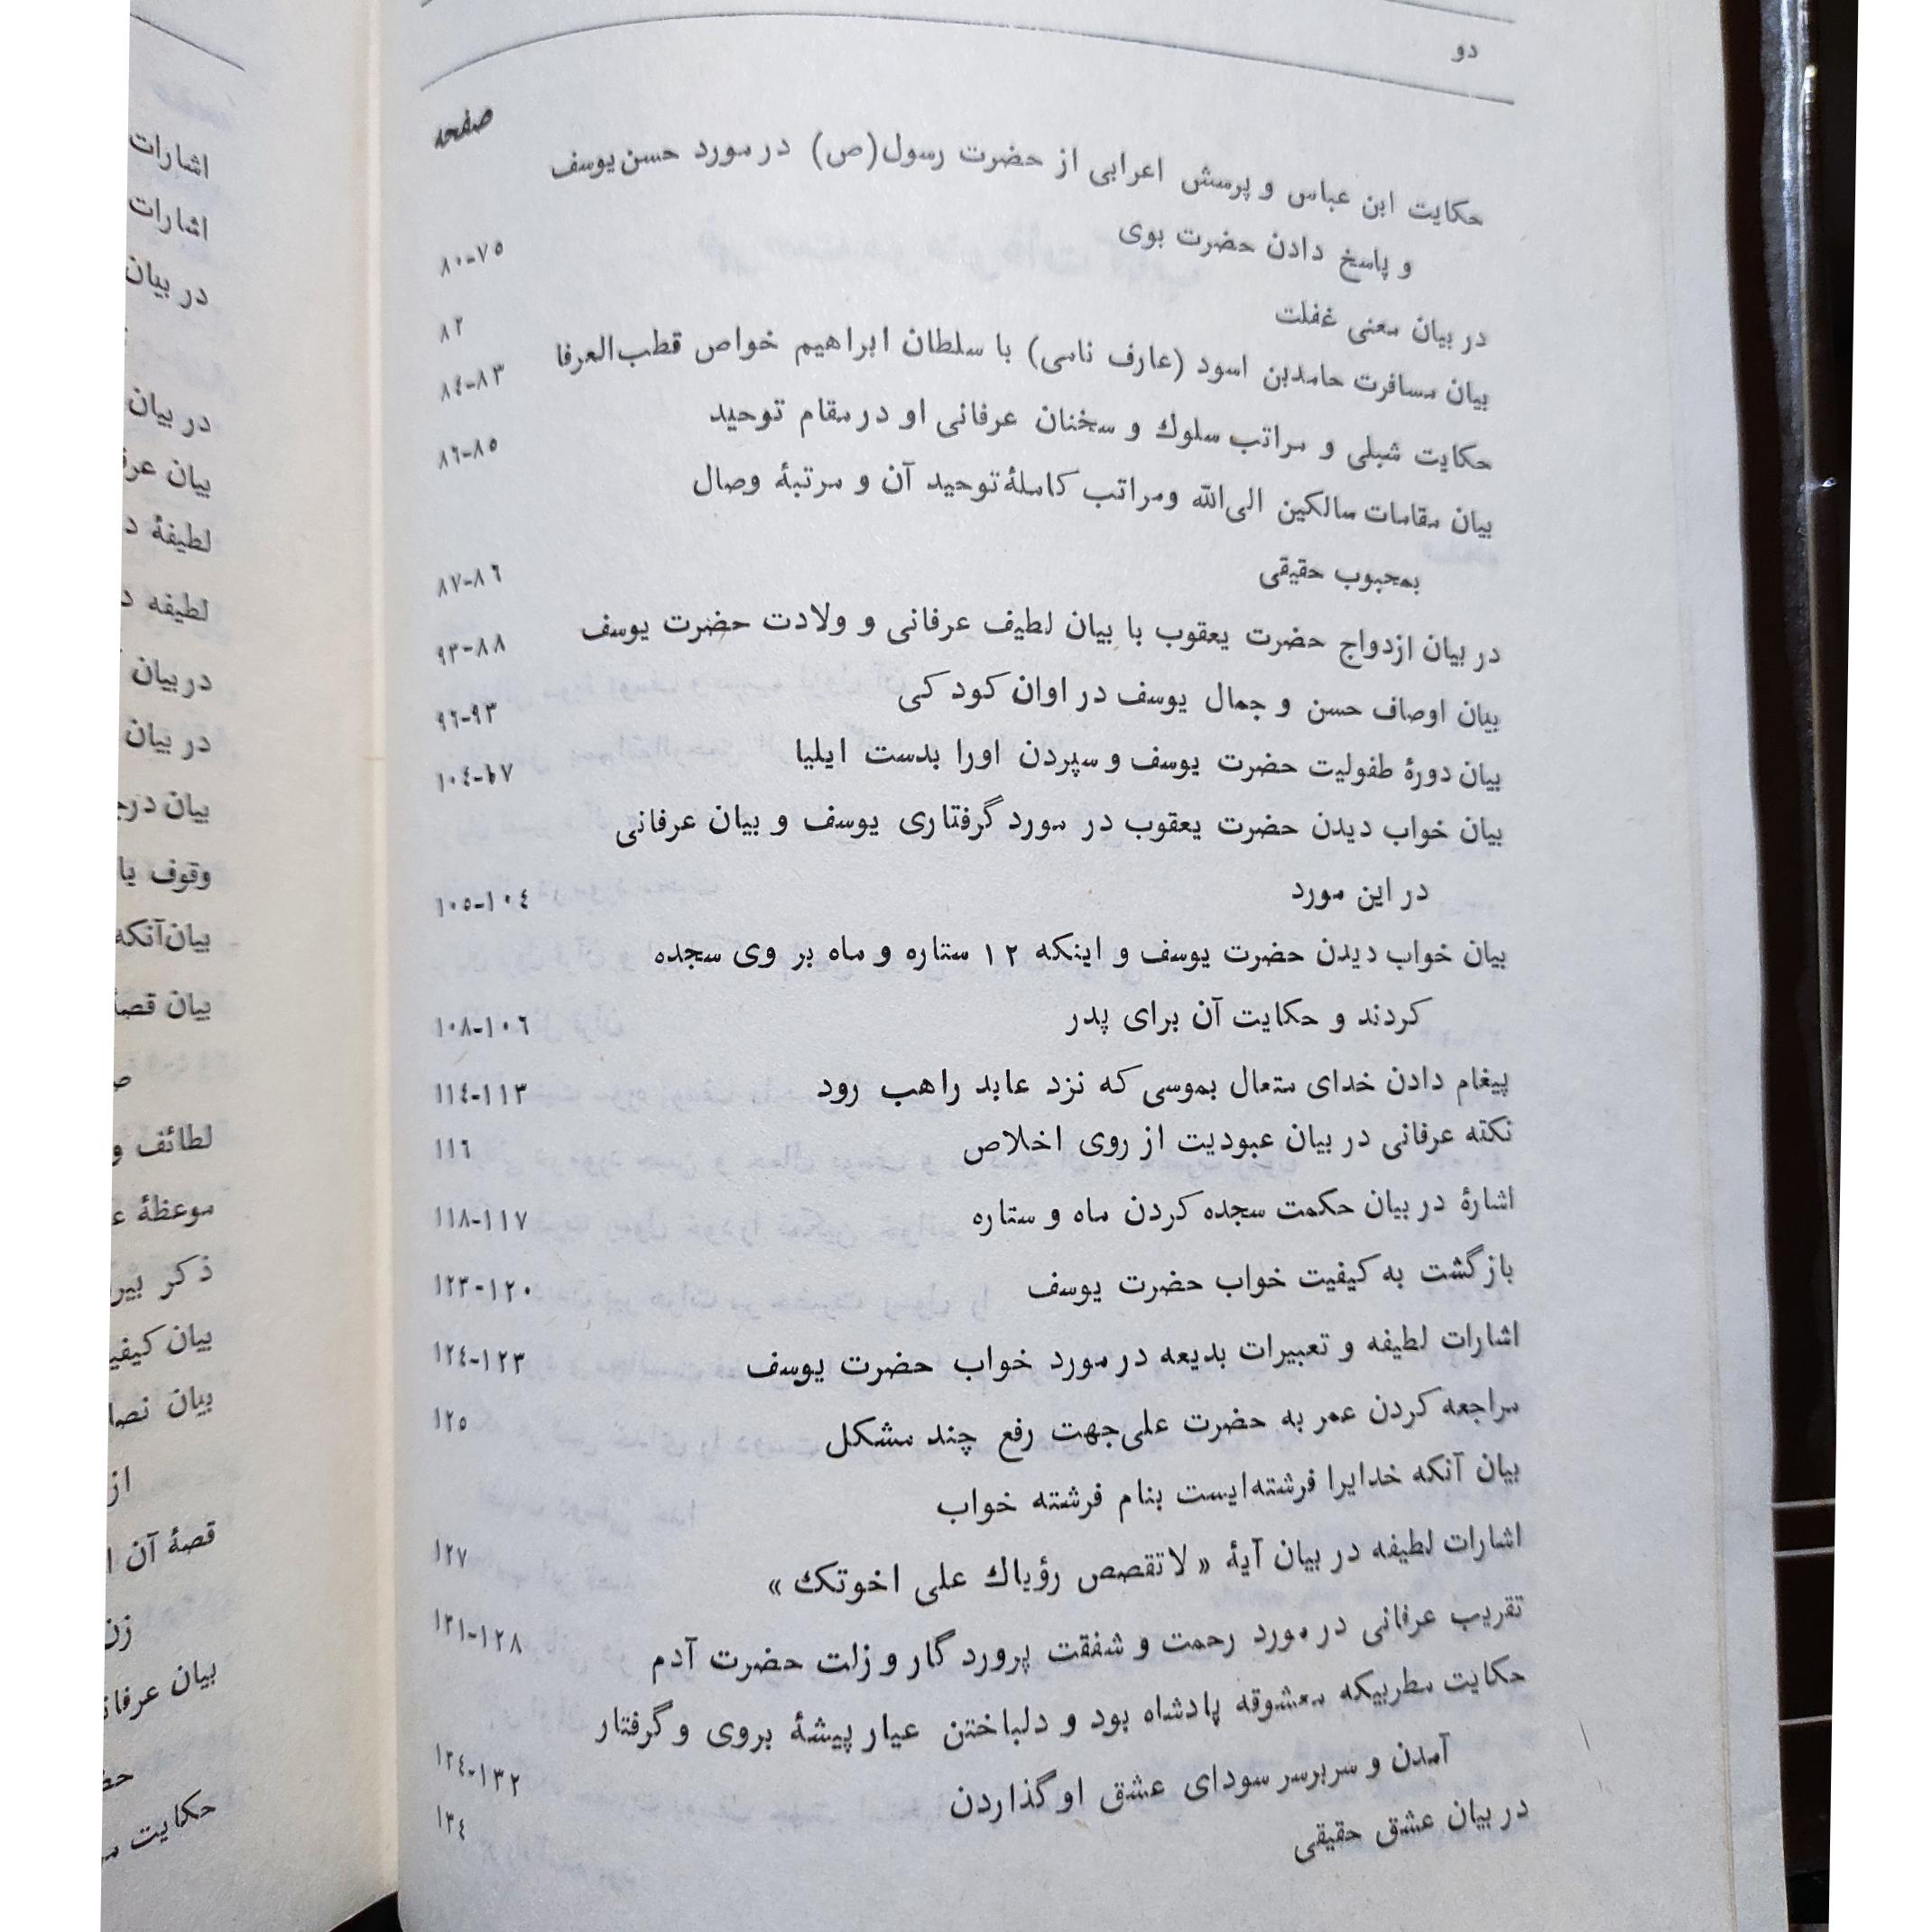 دو
صفحه
حکایت ابن عباس و پرسش اعرابی از حضرت رسول(ص) در مورد حسن یوسف
و پاسخ دادن حضرت بوی ۷۵-۸۰
در بیان معنی غفلت ۸۲
بیان مسافرت حامدبن اسود (عارف نامی) با سلطان ابراهیم خواص قطب‌العرفا ۸۳-۸٤
حکایت شبلی و مراتب سلوك و سخنان عرفانی او در مقام توحید ۸۵-۸٦
بیان مقامات سالکین الی‌الله ومراتب کاملهٔ توحید آن و مرتبهٔ وصال
بمحبوب حقیقی ۸٦-۸۷
در بیان ازدواج حضرت یعقوب با بیان لطیف عرفانی و ولادت حضرت یوسف ۸۸-۹۳
بیان اوصاف حسن و جمال یوسف در اوان کودکی ۹۳-۹٦
بیان دورهٔ طفولیت حضرت یوسف و سپردن اورا بدست ایلیا
بیان خواب دیدن حضرت یعقوب در مورد گرفتاری یوسف و بیان عرفانی
در این مورد ۱۰٤-۱۰۵
بیان خواب دیدن حضرت یوسف و اینکه ۱۲ ستاره و ماه بر وی سجده
کردند و حکایت آن برای پدر ۱۰٦-۱۰۸
پیغام دادن خدای متعال بموسی که نزد عابد راهب رود ۱۱۳-۱۱٤
نکته عرفانی در بیان عبودیت از روی اخلاص ۱۱٦
اشارهٔ در بیان حکمت سجده کردن ماه و ستاره ۱۱۷-۱۱۸
بازگشت به کیفیت خواب حضرت یوسف ۱۲۰-۱۲۳
اشارات لطیفه و تعبیرات بدیعه در مورد خواب حضرت یوسف ۱۲۳-۱۲٤
مراجعه کردن عمر به حضرت علی جهت رفع چند مشکل ۱۲۵
بیان آنکه خدایرا فرشته‌ایست بنام فرشته خواب
اشارات لطیفه در بیان آیهٔ « لاتقصص رؤیاك علی اخوتك » ۱۲۷
تقریب عرفانی در مورد رحمت و شفقت پروردگار و زلت حضرت آدم ۱۲۸-۱۳۱
حکایت مطربیکه معشوقه پادشاه بود و دلباختن عیار پیشهٔ بروی و گرفتار
آمدن و سربرسر سودای عشق او گذاردن ۱۳۲-۱۳٤
در بیان عشق حقیقی ۱۳٤
اشارات
اشارات
در بیان
در بیان
بیان
لطیفهٔ
لطیفه
در بیان
در بیان
بیان
وقوف
بیان آنکه
بیان
لطائف و
موعظهٔ
ذکر
بیان
بیان
از
قصهٔ آن
بیان
حکایت